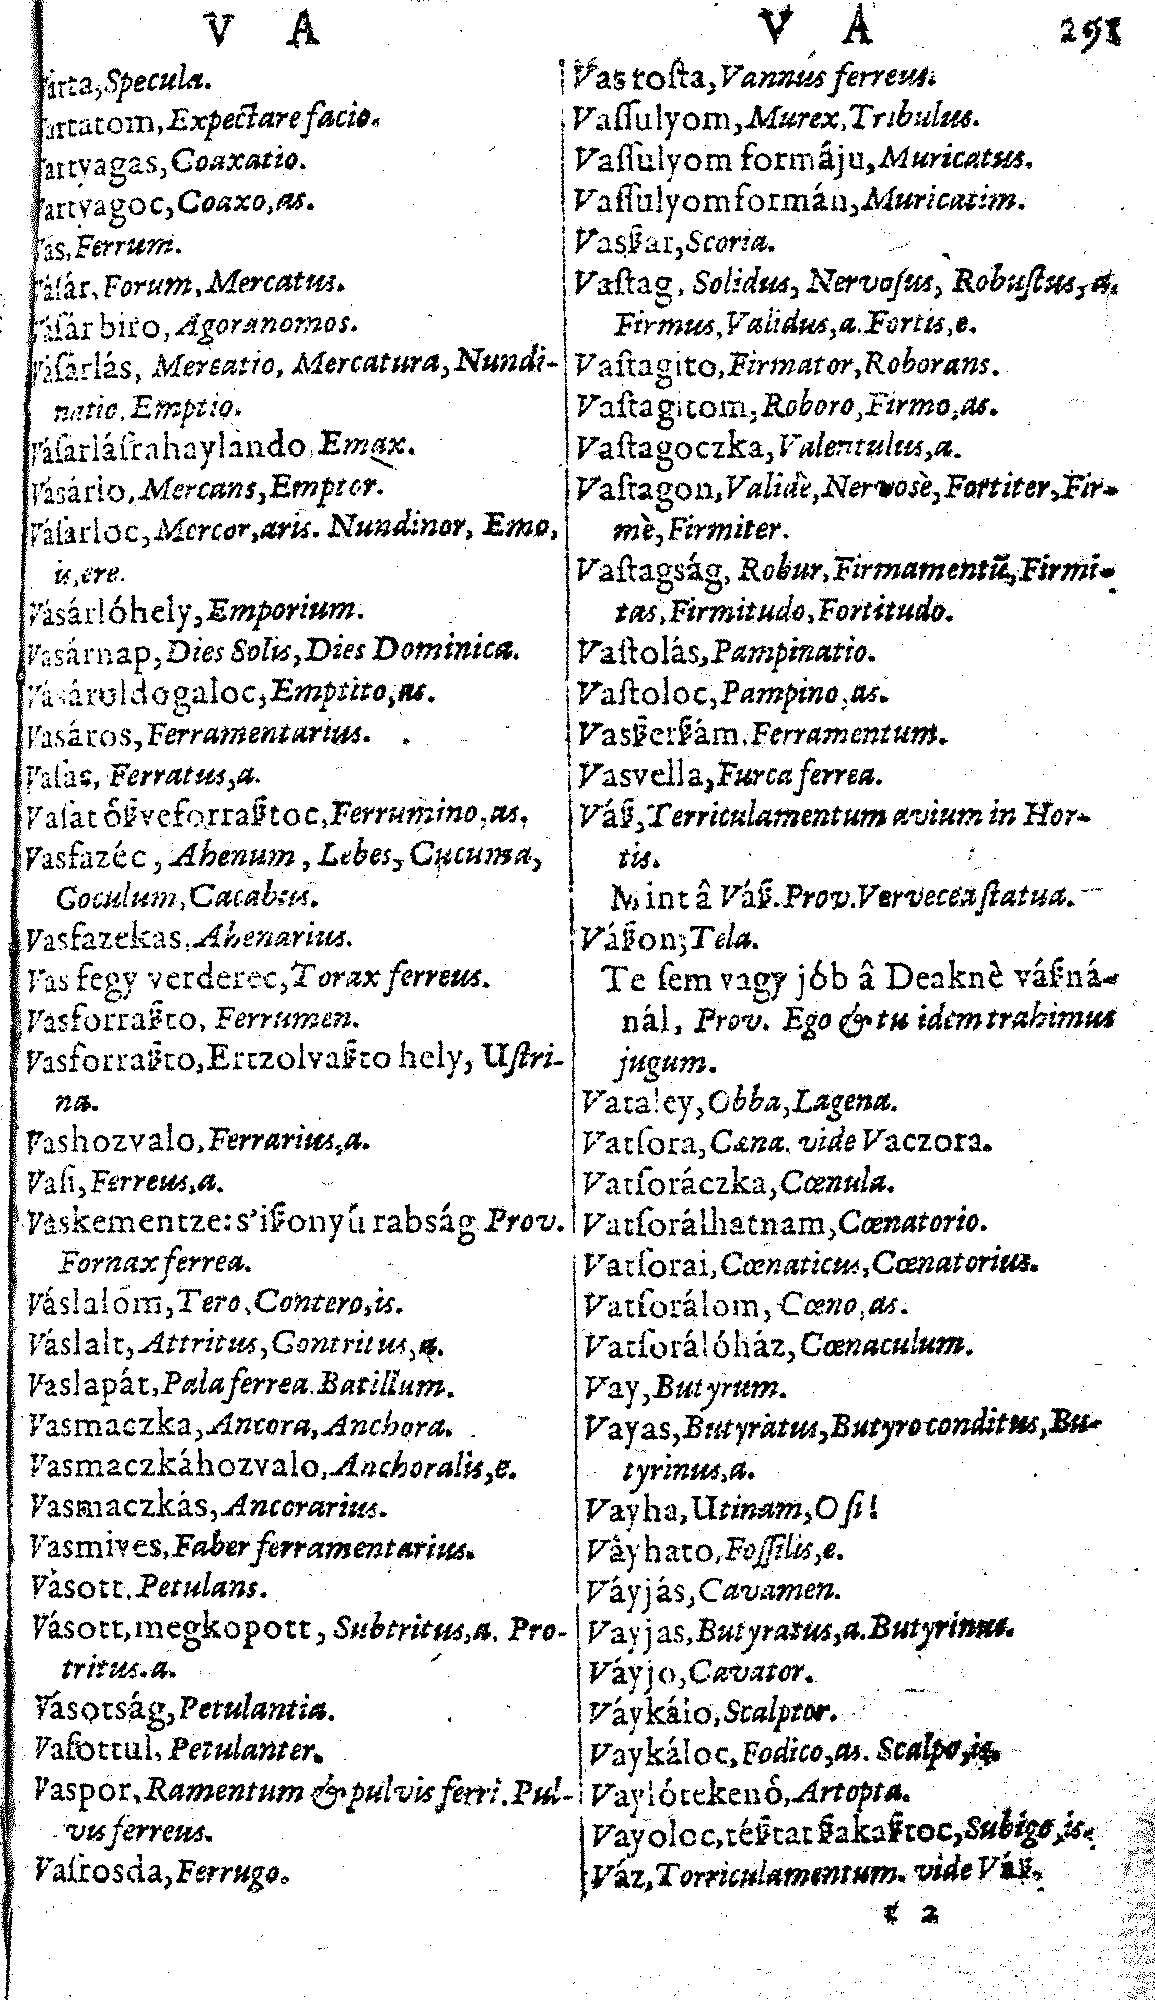 V A
Várta, Specula.
Vartatom, Expectare facio.
Vartyagas, Coaxatio.
Vartyagoc, Coaxo, as.
Vas, Ferrum.
Váſár, Forum, Mercatus.
Váſár biro, Agoranomos.
Váſárlás, Mercatio, Mercatura, Nundi-
natio, Emptio.
Váſárláſra haylando, Emax.
Vásárlo, Mercans, Emptor.
Váſárloc, Mercor, aris. Nundinor, Emo,
is, ere.
Vásárlóhely, Emporium.
Vasárnap, Dies Solis, Dies Dominica.
Vásároldogaloc, Emptito, as.
Vasáros, Ferramentarius.
Vaſas, Ferratus, a.
Vaſat ôßveforraßtoc, Ferrumino, as.
Vasfazéc, Ahenum, Lebes, Cucuma,
Coculum, Cacabus.
Vasfazekas, Ahenarius.
Vas fegy verderec, Torax ferreus.
Vasforraßto, Ferrumen.
Vasforraßto, Ertzolvaßto hely, Uſtri-
na.
Vashozvalo, Ferrarius, a.
Vaſi, Ferreus, a.
Vaskementze: s'ißonyú rabság Prov.
Fornax ferrea.
Váslalom, Tero, Contero, is.
Váslalt, Attritus, Contritus, a.
Vaslapát, Pala ferrea. Batillum.
Vasmaczka, Ancora, Anchora.
Vasmaczkáhozvalo, Anchoralis, e.
Vasmaczkás, Ancorarius.
Vasmives, Faber ferramentarius.
Vàsott, Petulans.
Vásott, megkopott, Subtritus, a. Pro-
tritus. a.
Vásotság, Petulantia.
Vaſottul, Petulanter.
Vaspor, Ramentum & pulvis ferri. Pul-
vis ferreus.
Vaſrosda, Ferrugo.
V A 291
Vas rosta, Vannus ferreus.
Vaſſulyom, Murex, Tribulus.
Vaſſulyom formâju, Muricatus.
Vaſſulyomformán, Muricatim.
Vasßar, Scoria.
Vaſtag, Solidus, Nervoſus, Robuſtus, a.
Firmus, Validus, a. Fortis, e.
Vaſtagito, Firmator, Roborans.
Vaſtagitom, Roboro, Firmo, as.
Vaſtagoczka, Valentulus, a.
Vaſtagon, Validè, Nervosè, Fortiter, Fir-
mè, Firmiter.
Vaſtagság, Robur, Firmamentũ, Firmi-
tas, Firmitudo, Fortitudo.
Vaſtolás, Pampinatio.
Vaſtoloc, Pampino, as.
Vasßerßám, Ferramentum.
Vasvella, Furca ferrea.
Váß, Terriculamentum avium in Hor-
tis.
Mint â Váß. Prov. Vervecea ſtatua.
Váßon; Tela.
Te ſem vagy jób â Deaknè váßná-
nál, Prov. Ego & tu idem trahimus
jugum.
Vataley, Obba, Lagena.
Vatſora, Cæna. vide Vaczora.
Vatſoráczka, Cœnula.
Vatſorálhatnam, Cœnatorio.
Vatſorai, Cœnaticus, Cœnatorius.
Vatſorálom, Cœno, as.
Vatſorálóház, Cœnaculum.
Vay, Butyrum.
Vayas, Butyriatus, Butyro conditus, Bu-
tyrinus, a.
Vayha, Utinam, O ſi!
Vâyhato, Foſſilis, e.
Váyjás, Cavamen.
Vayjas, Butyratus, a. Butyrinus.
Váyjo, Cavator.
Váykáio, Scalptor.
Vaykáloc, Fodico, as. Scalpo, is.
Vaylótekenô, Artopta.
Vayoloc, téßtat ßakaßtoc, Subigo, is.
Váz, Torriculamentum. vide Váß.
t 2